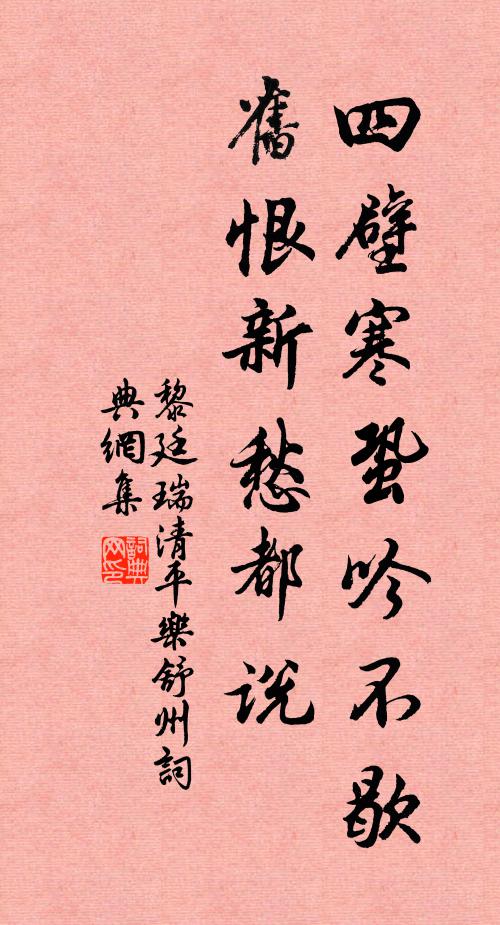 四壁寒蛩吟不歇
舊恨新愁都說
黎廷瑞清平樂舒州詞
典網集
詞典
网印